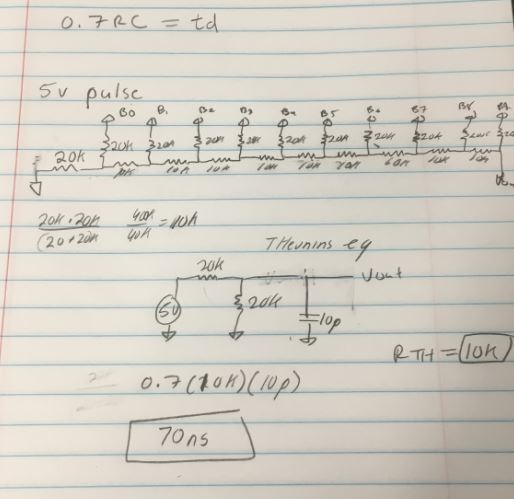 0.7RC = td
5v pulse
B0 B1 B2 B3 B4 B5 B6 B7 B8
20K 20K 20K 20K 20K 20K 20K 20K 20K
20K 10K 10K 10K 10K 10K 10K 10K 10K
20K·20K 400K = 10K
(20+20K 40K
THevnins eq
20K Vout
5V 20K 10p
RTH = 10K
0.7(10K)(10p)
70ns